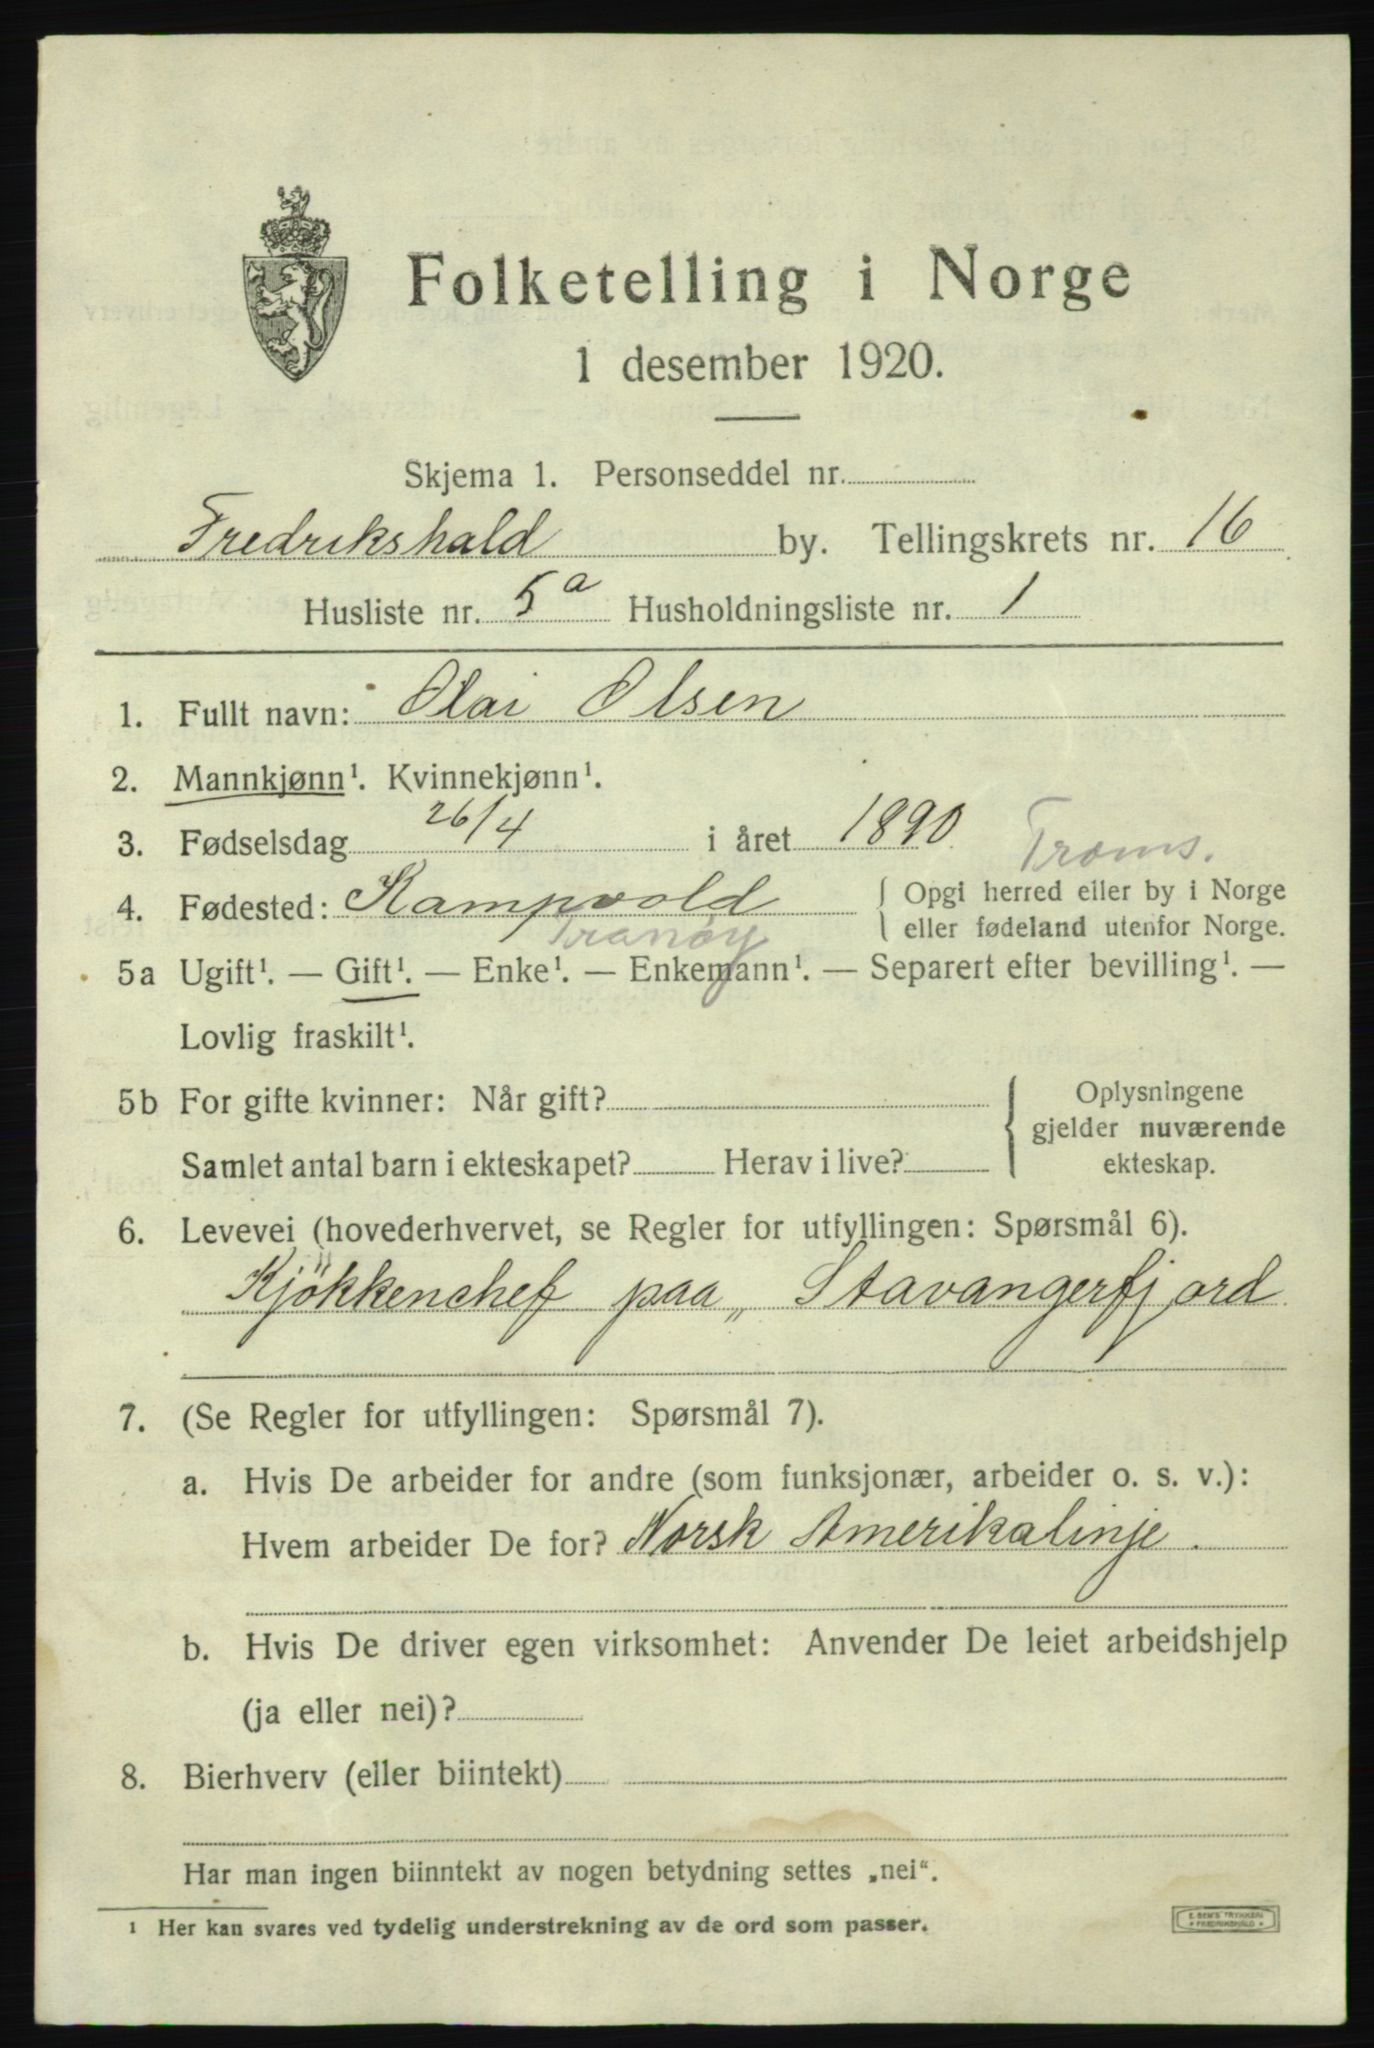 Folketelling i Norge
1 desember 1920.
Skjema 1. Personseddel nr.
Fredrikshald by. Tellingskrets nr. 16
Husliste nr. 5a Husholdningsliste nr. 1
1. Fullt navn: Olai Olsen
2. Mannkjønn¹. Kvinnekjønn¹.
3. Fødselsdag 26/4 i året 1890
Troms.
4. Fødested: Kampvold { Opgi herred eller by i Norge
eller fødeland utenfor Norge.
Tranöy
5a Ugift¹. — Gift¹. — Enke¹. — Enkemann¹. — Separert efter bevilling¹. —
Lovlig fraskilt¹.
5b For gifte kvinner: Når gift?
Samlet antal barn i ekteskapet? Herav i live?
Oplysningene
gjelder nuværende
ekteskap.
6. Levevei (hovederhvervet, se Regler for utfyllingen: Spørsmål 6).
Kjökkenchef paa „Stavangerfjord
7. (Se Regler for utfyllingen: Spørsmål 7).
a. Hvis De arbeider for andre (som funksjonær, arbeider o. s. v.):
Hvem arbeider De for? Norsk Amerikalinje.
b. Hvis De driver egen virksomhet: Anvender De leiet arbeidshjelp
(ja eller nei)?
8. Bierhverv (eller biintekt)
Har man ingen biinntekt av nogen betydning settes „nei“.
¹ Her kan svares ved tydelig understrekning av de ord som passer.
E. SEM'S TRYKKERI
* FREDRIKSHALD *